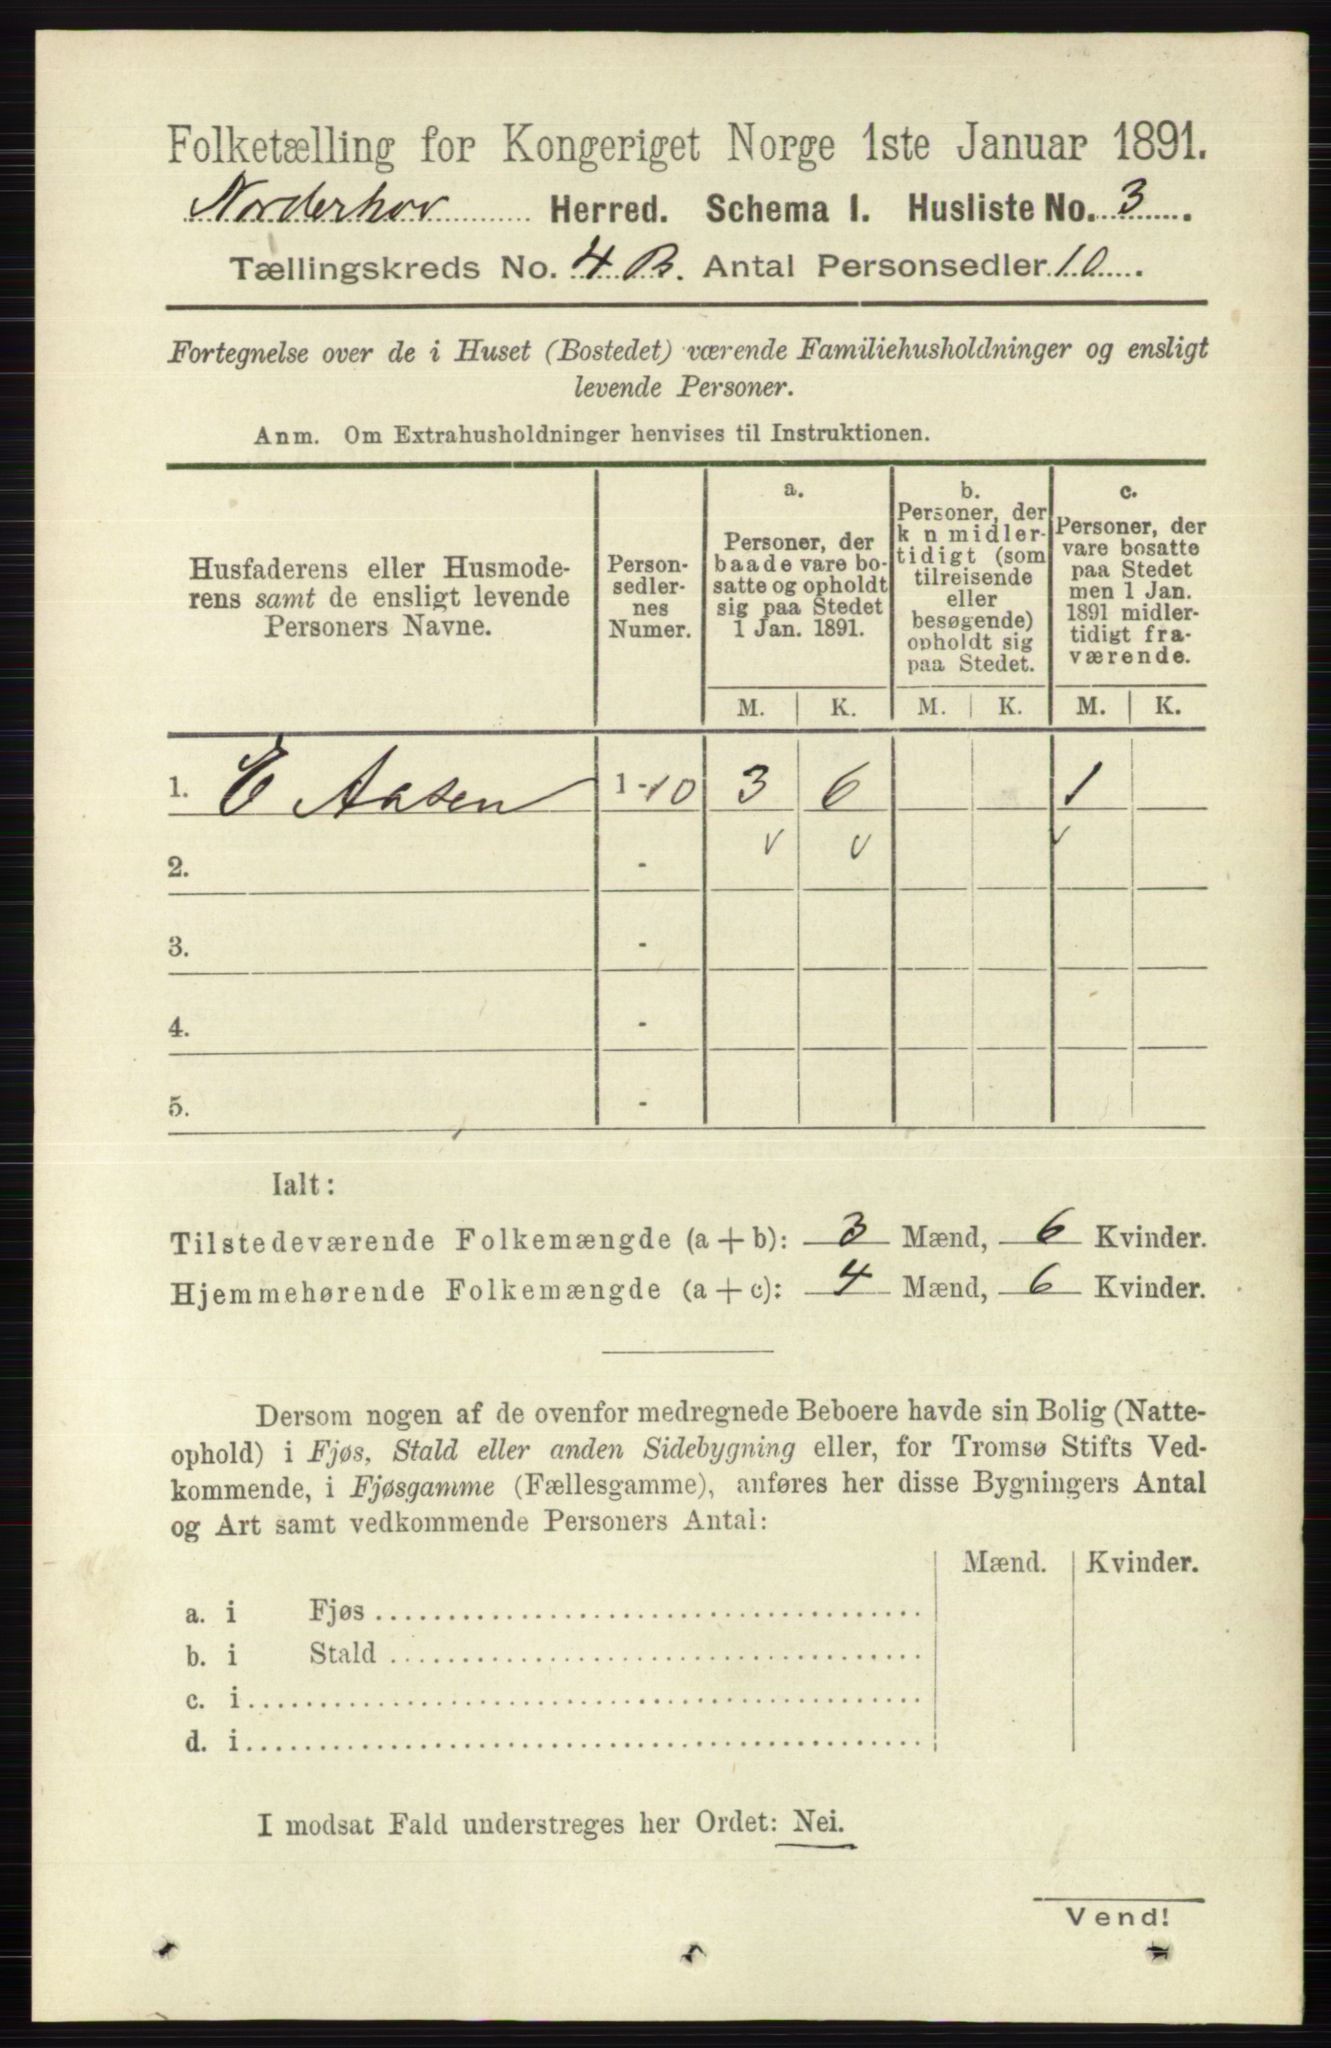 Folketælling for Kongeriget Norge 1ste Januar 1891.
Norderhov Herred. Schema I. Husliste No. 3
Tællingskreds No. 4 B. Antal Personsedler 10
Fortegnelse over de i Huset (Bostedet) værende Familiehusholdninger og ensligt
levende Personer.
Anm. Om Extrahusholdninger henvises til Instruktionen.
Husfaderens eller Husmode-
rens samt de ensligt levende
Personers Navne.
Person-
sedler-
nes
Numer.
a.
Personer, der
baade vare bo-
satte og opholdt
sig paa Stedet
1 Jan. 1891.
b.
Personer, der
k n midler-
tidigt (som
tilreisende
eller
besøgende)
opholdt sig
paa Stedet.
c.
Personer, der
vare bosatte
paa Stedet
men 1 Jan.
1891 midler-
tidigt fra-
værende.
M. K. M. K. M. K.
1. E Aasen 1 - 10 3 6 1
2. -
3. -
4. -
5. -
Ialt:
Tilstedeværende Folkemængde (a + b): 3 Mænd, 6 Kvinder.
Hjemmehørende Folkemængde (a + c): 4 Mænd, 6 Kvinder.
Dersom nogen af de ovenfor medregnede Beboere havde sin Bolig (Natte-
ophold) i Fjøs, Stald eller anden Sidebygning eller, for Tromsø Stifts Ved-
kommende, i Fjøsgamme (Fællesgamme), anføres her disse Bygningers Antal
og Art samt vedkommende Personers Antal:
Mænd. Kvinder.
a. i Fjøs
b. i Stald
c. i
d. i
I modsat Fald understreges her Ordet: Nei.
Vend!